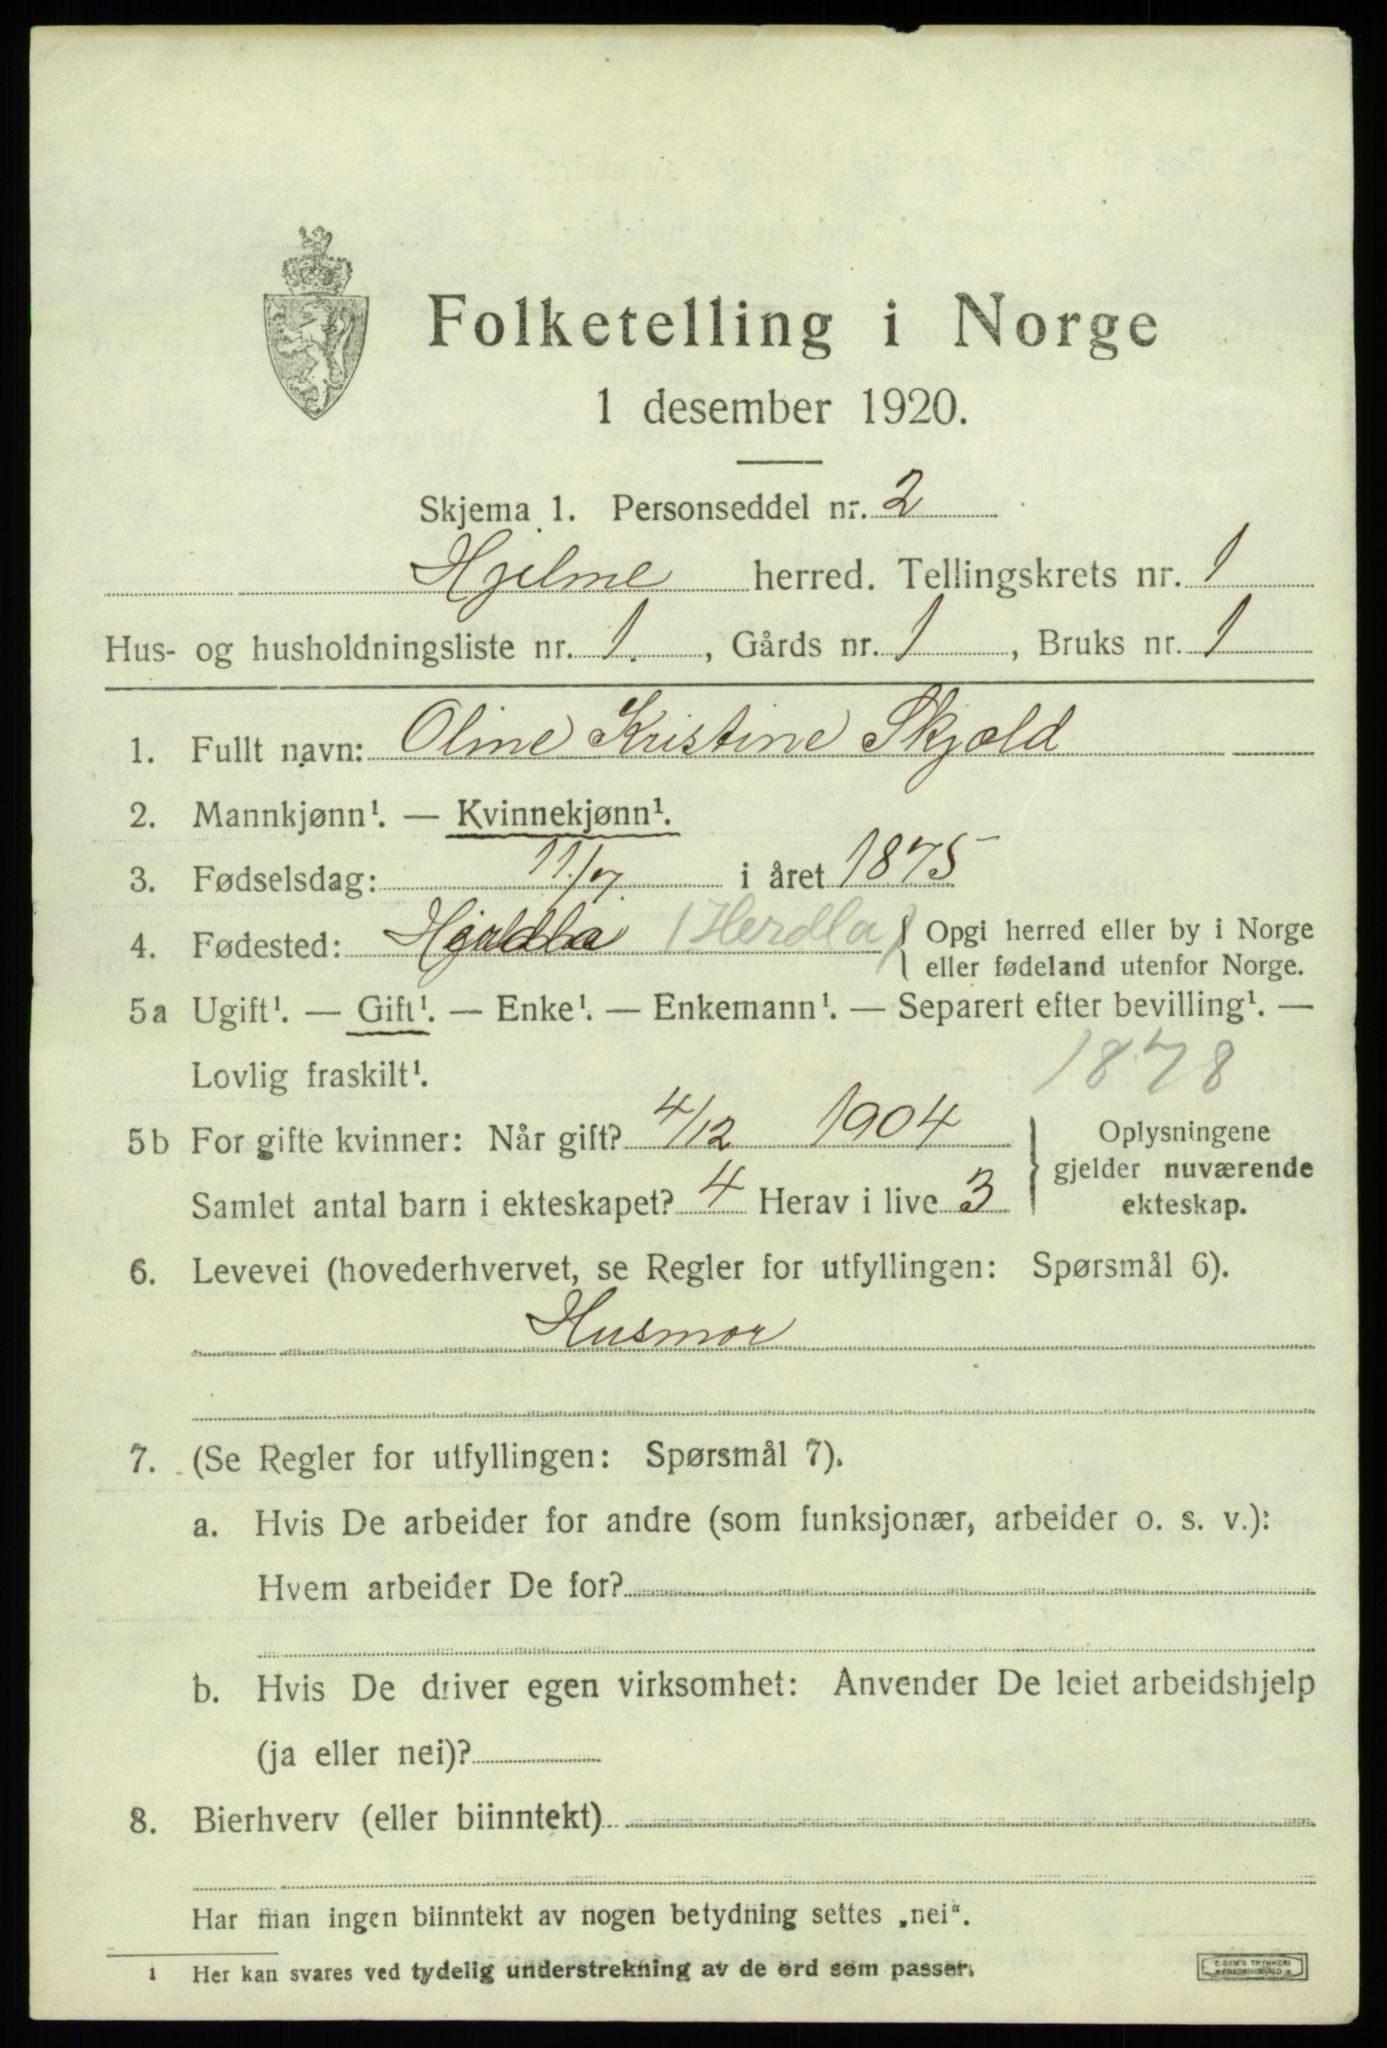 Folketelling i Norge
1 desember 1920.
Skjema 1. Personseddel nr. 2
Hjelme herred. Tellingskrets nr. 1
Hus- og husholdningsliste nr. 1. , Gårds nr. 1 , Bruks nr. 1
1. Fullt navn: Oline Kristine Skjold
2. Mannkjønn¹. — Kvinnekjønn¹.
3. Fødselsdag: 11/7 i året 1875
4. Fødested: (Herdla) { Opgi herred eller by i Norge
eller fødeland utenfor Norge.
5a Ugift¹. — Gift¹. — Enke¹. — Enkemann¹. — Separert efter bevilling¹. —
Lovlig fraskilt¹. 1878
5b For gifte kvinner: Når gift? 4/12 1904 } Oplysningene
gjelder nuværende
Samlet antal barn i ekteskapet? 4 Herav i live 3 ekteskap.
6. Levevei (hovederhvervet, se Regler for utfyllingen: Spørsmål 6).
Husmor
7. (Se Regler for utfyllingen: Spørsmål 7).
a. Hvis De arbeider for andre (som funksjonær, arbeider o. s. v.):
Hvem arbeider De for?
b. Hvis De driver egen virksomhet: Anvender De leiet arbeidshjelp
(ja eller nei)?
8. Bierhverv (eller biinntekt)
Har man ingen biinntekt av nogen betydning settes „nei“.
1 Her kan svares ved tydelig understrekning av de ord som passer.
E. SEM'S TRYKKERI
FREDRIKSHALD